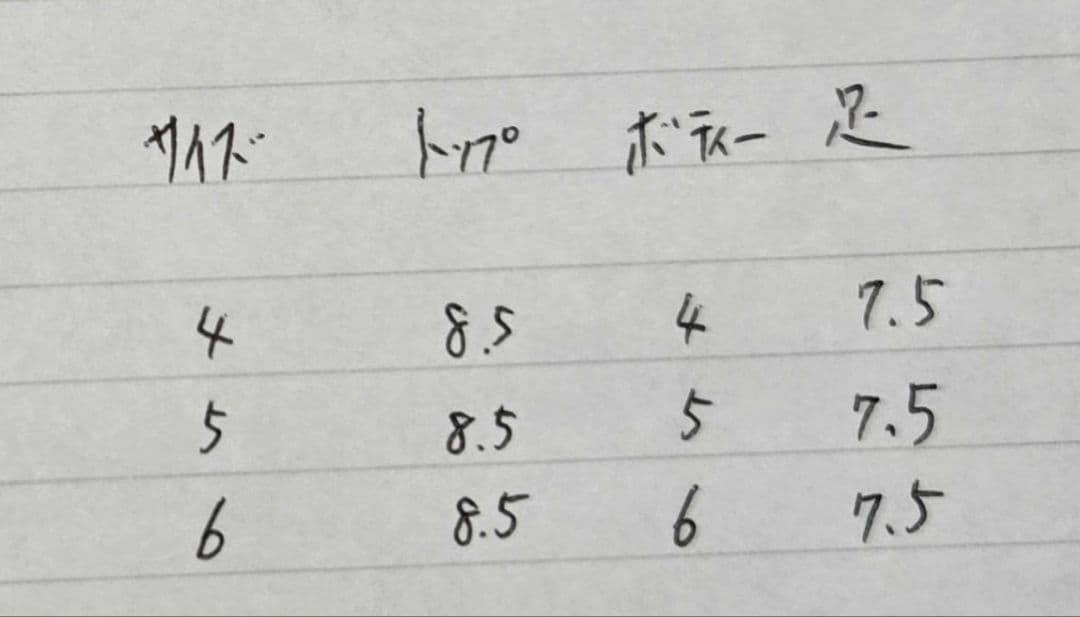 サイズ トップ ボディー 足
4 8.5 4 7.5
5 8.5 5 7.5
6 8.5 6 7.5